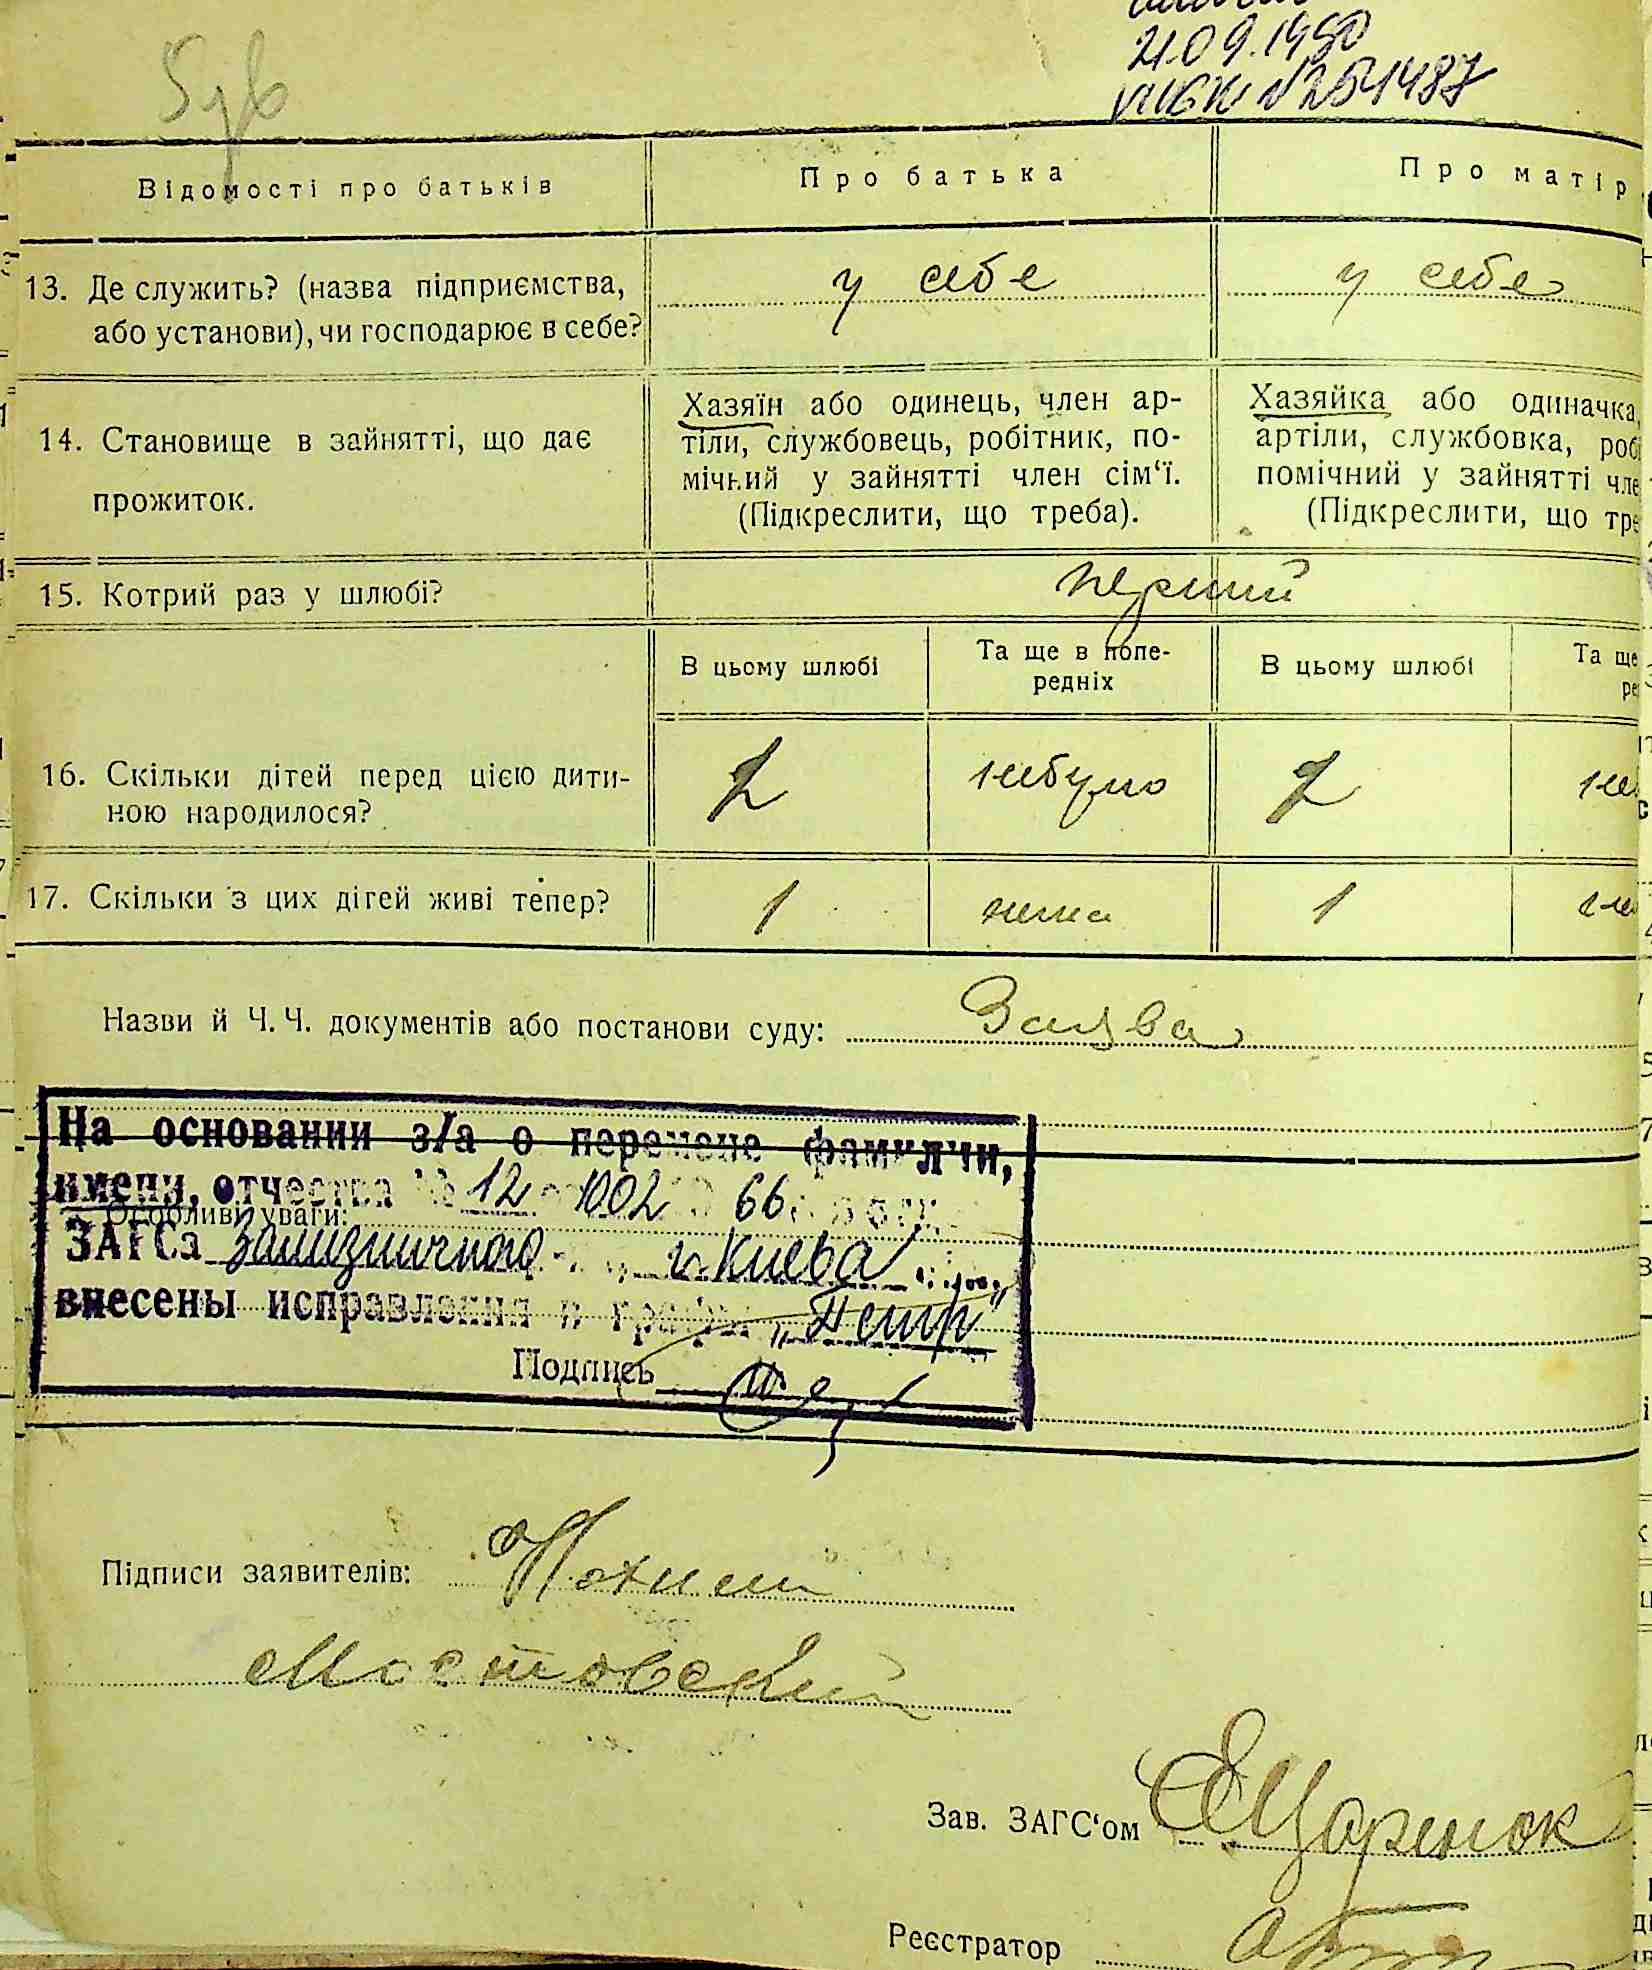 21.09.1950
№ 251487
Відомості про батьків
Про батька
Про матір
13. Де служить? (назва підприємства,
або установи), чи господарює в себе?
у себе
у себе
14. Становище в зайнятті, що дає
прожиток.
Хазяїн або одинець, член ар-
тіли, службовець, робітник, по-
мічний у зайнятті член сім‘ї.
(Підкреслити, що треба).
Хазяйка або одиначка,
артіли, службовка, роб
помічний у зайнятті чле
(Підкреслити, що тре
15. Котрий раз у шлюбі?
перший
В цьому шлюбі
Та ще в попе-
редніх
В цьому шлюбі
Та ще
ре
16. Скільки дітей перед цією дити-
ною народилося?
2
небуло
2
не
17. Скільки з цих дітей живі тепер?
1
нема
1
не
Назви й Ч. Ч. документів або постанови суду:
Заява
На основании з/а о перемене фамилии,
имени, отчества № 12 от 1002 66
Особливі уваги:
ЗАГСа Зализничного г. Киева
внесены исправления в графы „Петр“
Подпись
Підписи заявителів:
Мостовский
Зав. ЗАГС‘ом
Реєстратор